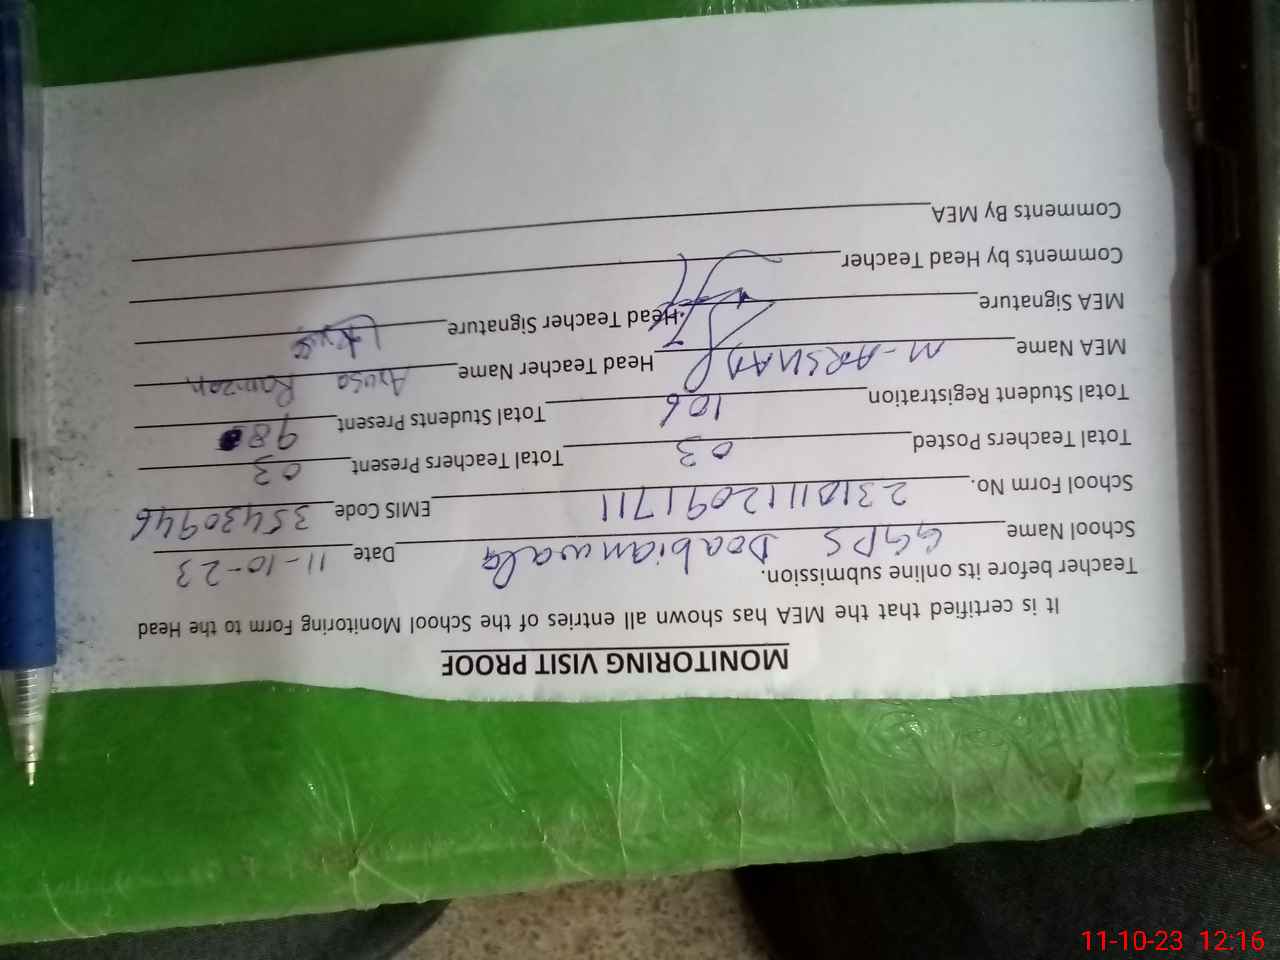 MONITORING VISIT PROOF
It is certified that the MEA has shown all entries of the School Monitoring Form to the Head
Teacher before its online submission.
School Name GGPS Doabianwala Date 11-10-23
School Form No. 2310111209 1711 EMIS Code 35430946
Total Teachers Posted 03 Total Teachers Present 03
Total Student Registration 106 Total Students Present 98
MEA Name M-ARSHAD Head Teacher Name Ramzan
MEA Signature Head Teacher Signature
Comments by Head Teacher
Comments By MEA
11-10-23 12:16